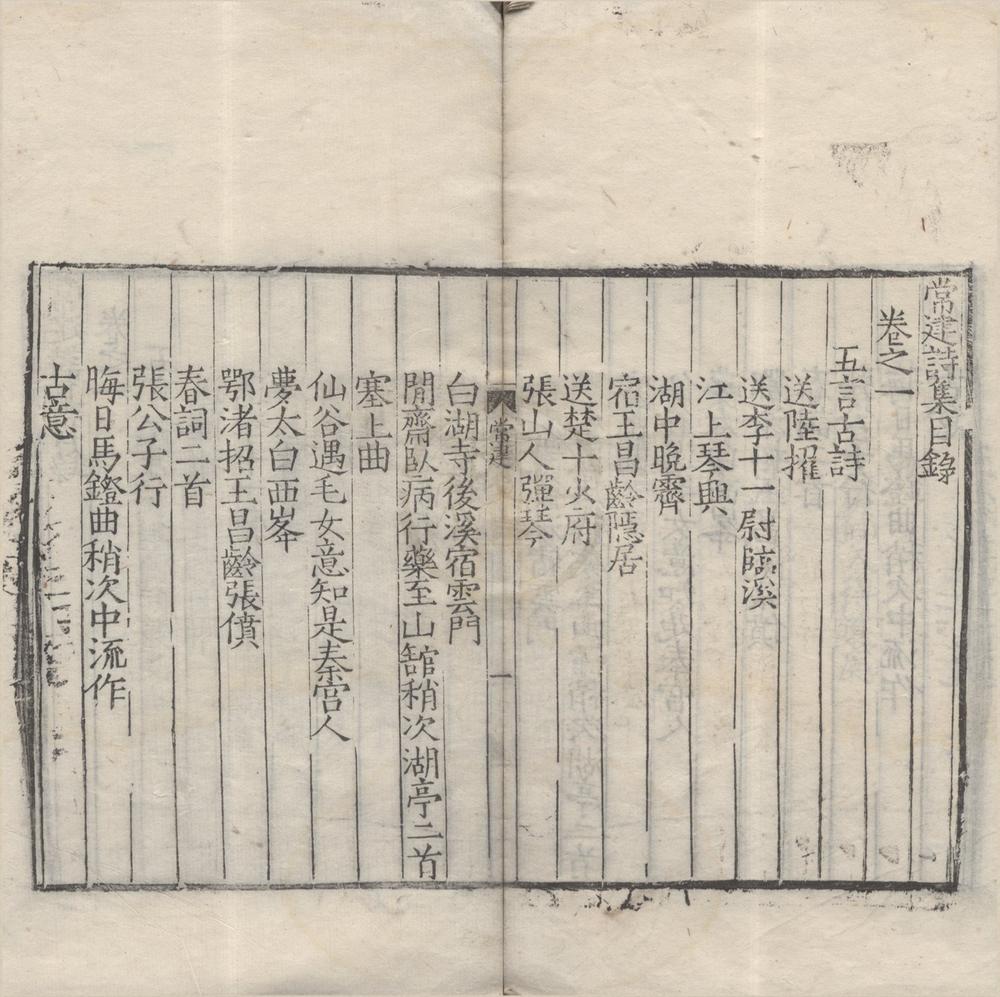 常建詩集目錄
卷之一
五言古詩
送陸擢
送李十一尉臨溪
江上琴興
湖中晚霽
宿王昌齡隱居
送楚十少府
張山人彈琴
常建
一
白湖寺後溪宿雲門
閒齋臥病行藥至山舘稍次湖亭二首
塞上曲
仙谷遇毛女意知是秦宫人
夢太白西峯
鄂渚招王昌齡張僨
春詞二首
張公子行
晦日馬鐙曲稍次中流作
古意